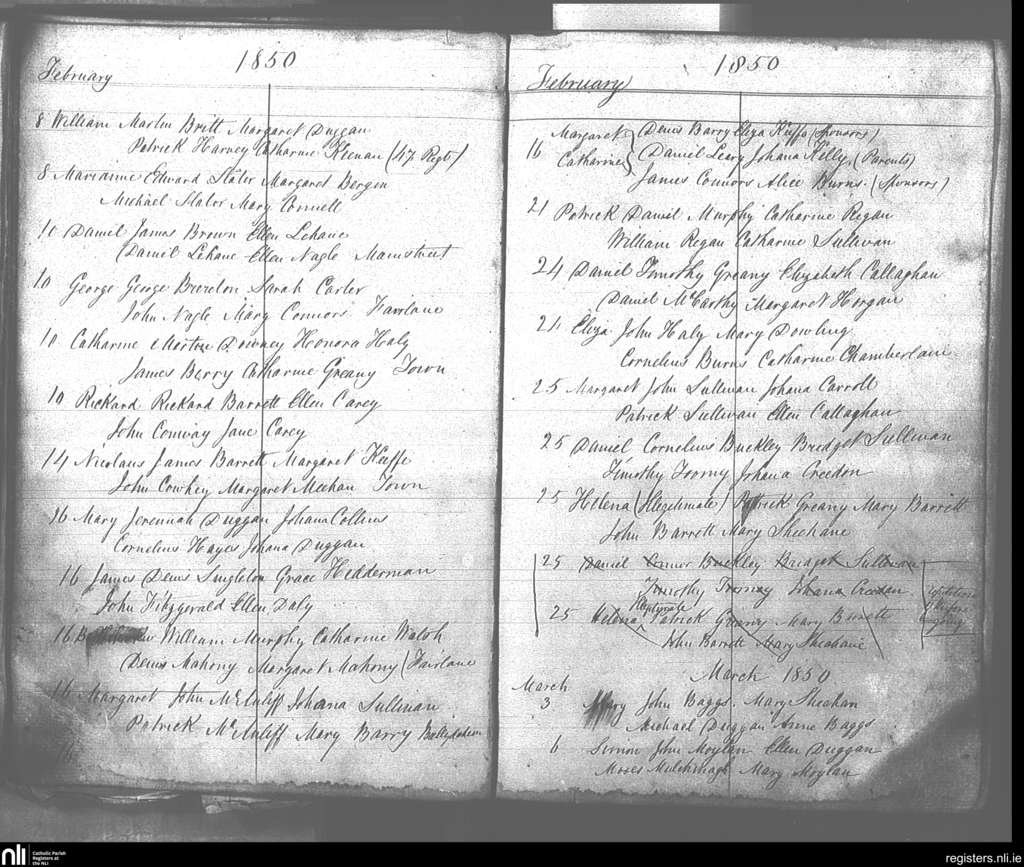 1850
February
8 William Martin Britt Margaret Duggan
Patrick Harney Catharine Keenan (47 Regt)
8 Marianne Edward Slator Margaret Bergin
Michael Slator Mary Connell
10 Daniel James Brown Ellen Lehane
Daniel Lehane Ellen Nagle Mainstreet
10 George George Brereton Sarah Carter
John Nagle Mary Connors Fairlane
10 Catharine Morton Downey Honora Haly
James Barry Catharine Greany Town
10 Rickard Rickard Barrett Ellen Carey
John Conway Jane Carey
14 Nicolaus James Barrett Margaret Keffe
John Cowhey Margaret Meehan Town
16 Mary Jeremiah Duggan Johana Collins
Cornelius Hayes Johana Duggan
16 James Denis Singleton Grace Hedderman
John Fitzgerald Ellen Daly
16 William Murphy Catharine Walsh
Denis Mahony Margaret Mahony (Fairlane
16 Margaret John McAuliff Johana Sullivan
Patrick McAuliff Mary Barry
1850
February
Margaret Denis Barry Eliza Keffe (Sponsors)
16 Catharine Daniel Leary Johana Kelly (Parents)
James Connors Alice Burns (Sponsors)
21 Patrick Daniel Murphy Catharine Regan
William Regan Catharine Sullivan
24 Daniel Timothy Greany Elizabeth Callaghan
Daniel McCarthy Margaret Horgan
24 Eliza John Haly Mary Dowling
Cornelius Burns Catharine Chamberlain
25 Margaret John Sullivan Johana Carroll
Patrick Sullivan Ellen Callaghan
25 Daniel Cornelius Buckley Bridget Sullivan
Timothy Tromy Johana Creedon
25 Helena (Illegitimate) Patrick Greany Mary Barrett
John Barrett Mary Sheehane
25 Daniel Connor Buckley Bridget Sullivan
Timothy Tromy Johana Creedon
25 Helena Illegitimate Patrick Greany Mary Barrett
John Barrett Mary Sheehane
March 1850
March
3 Mary John Baggs Mary Sheehan
Michael Duggan Anne Baggs
6 Simon John Moylan Ellen Duggan
Moses Mary Moylan
nli Catholic Parish
Registers at
the NLI
registers.nli.ie